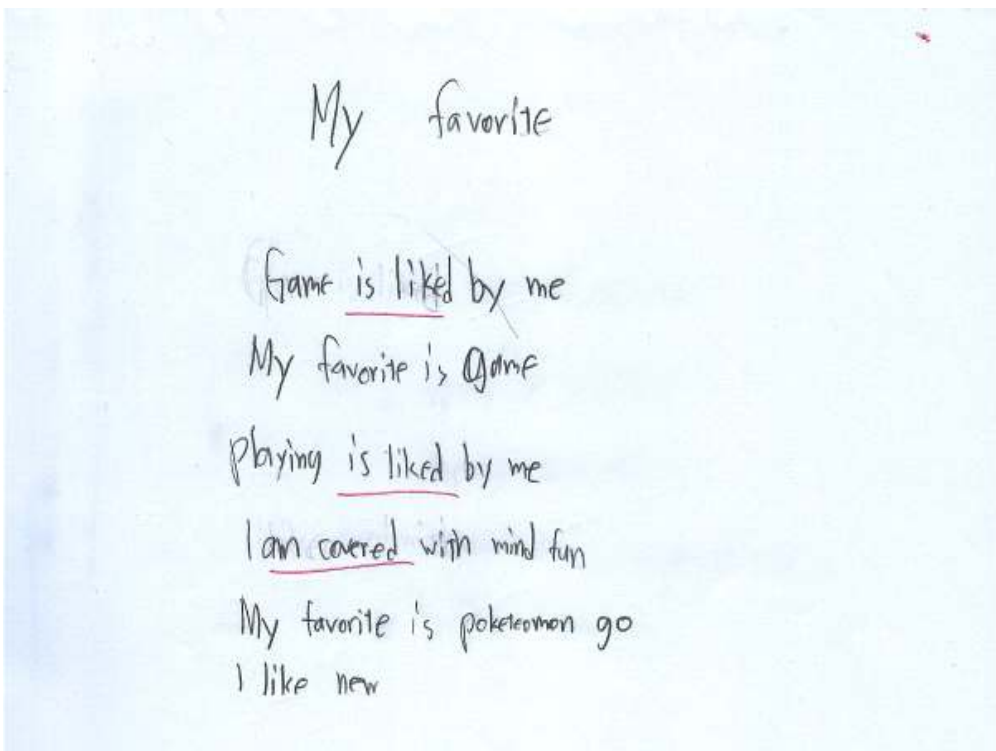 My favorite
Game is liked by me
My favorite is Game
playing is liked by me
I am covered with mind fun
My favorite is poketeomon go
I like new